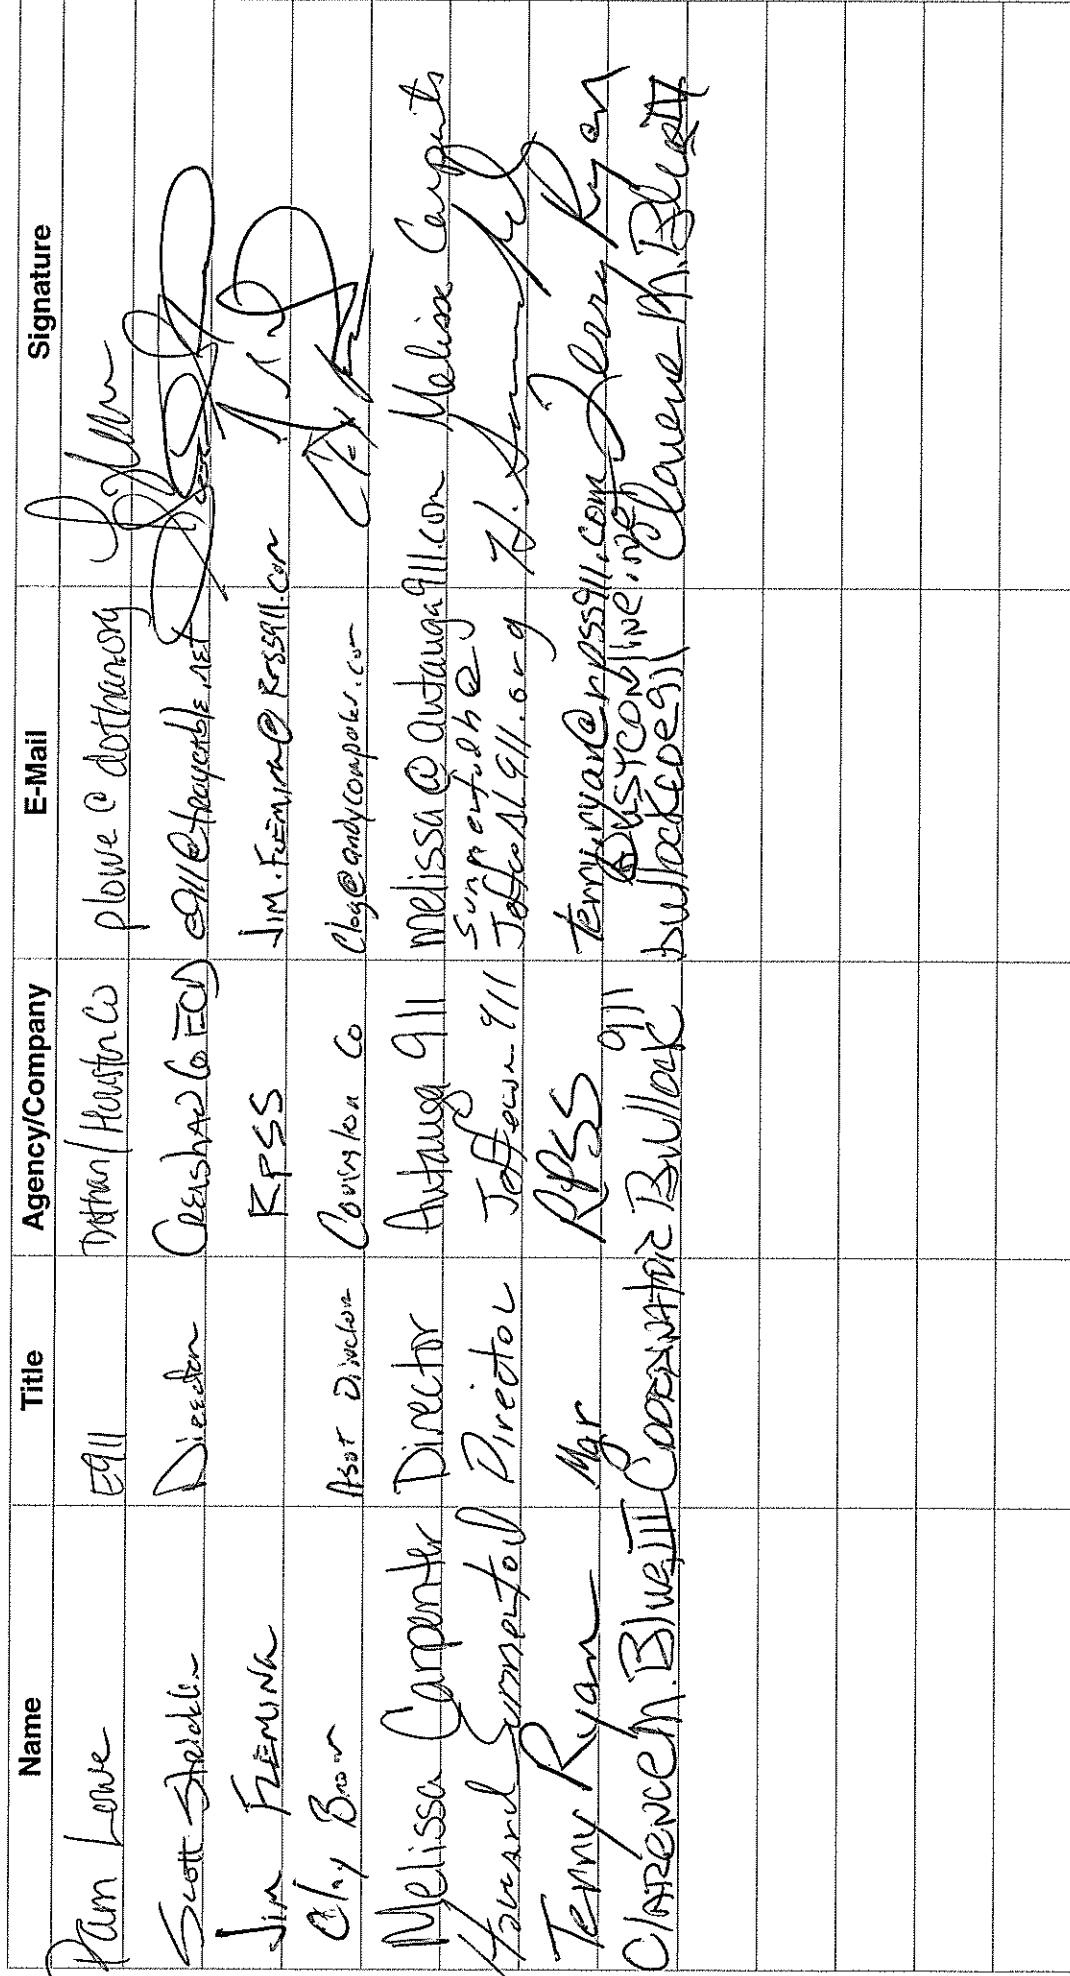 Name Title Agency/Company E-Mail Signature
Pam Lowe E911 Dothan/Houston Co plowe@dothan.org
Scott Stricklin Director Crenshaw Co ECD e911@troycable.net
Jim Fleming RPSS Jim.Fleming@RPSS911.com
Clay Brown Asst Director Covington Co Clay@andycomputer.com Clay
Melissa Carpenter Director Autauga 911 melissa@autauga911.com Melissa Carpenter
Howard Summerford Director Jefferson 911 Summerfordh@
Jeffcoal911.org
Terry Ryan Mgr RPSS terry.ryan@rpss911.com Terry Ryan
Clarence M. Blue III Coordinator Bullock 911 bullockcoe911
@ustconline.net Clarence M. Blue III